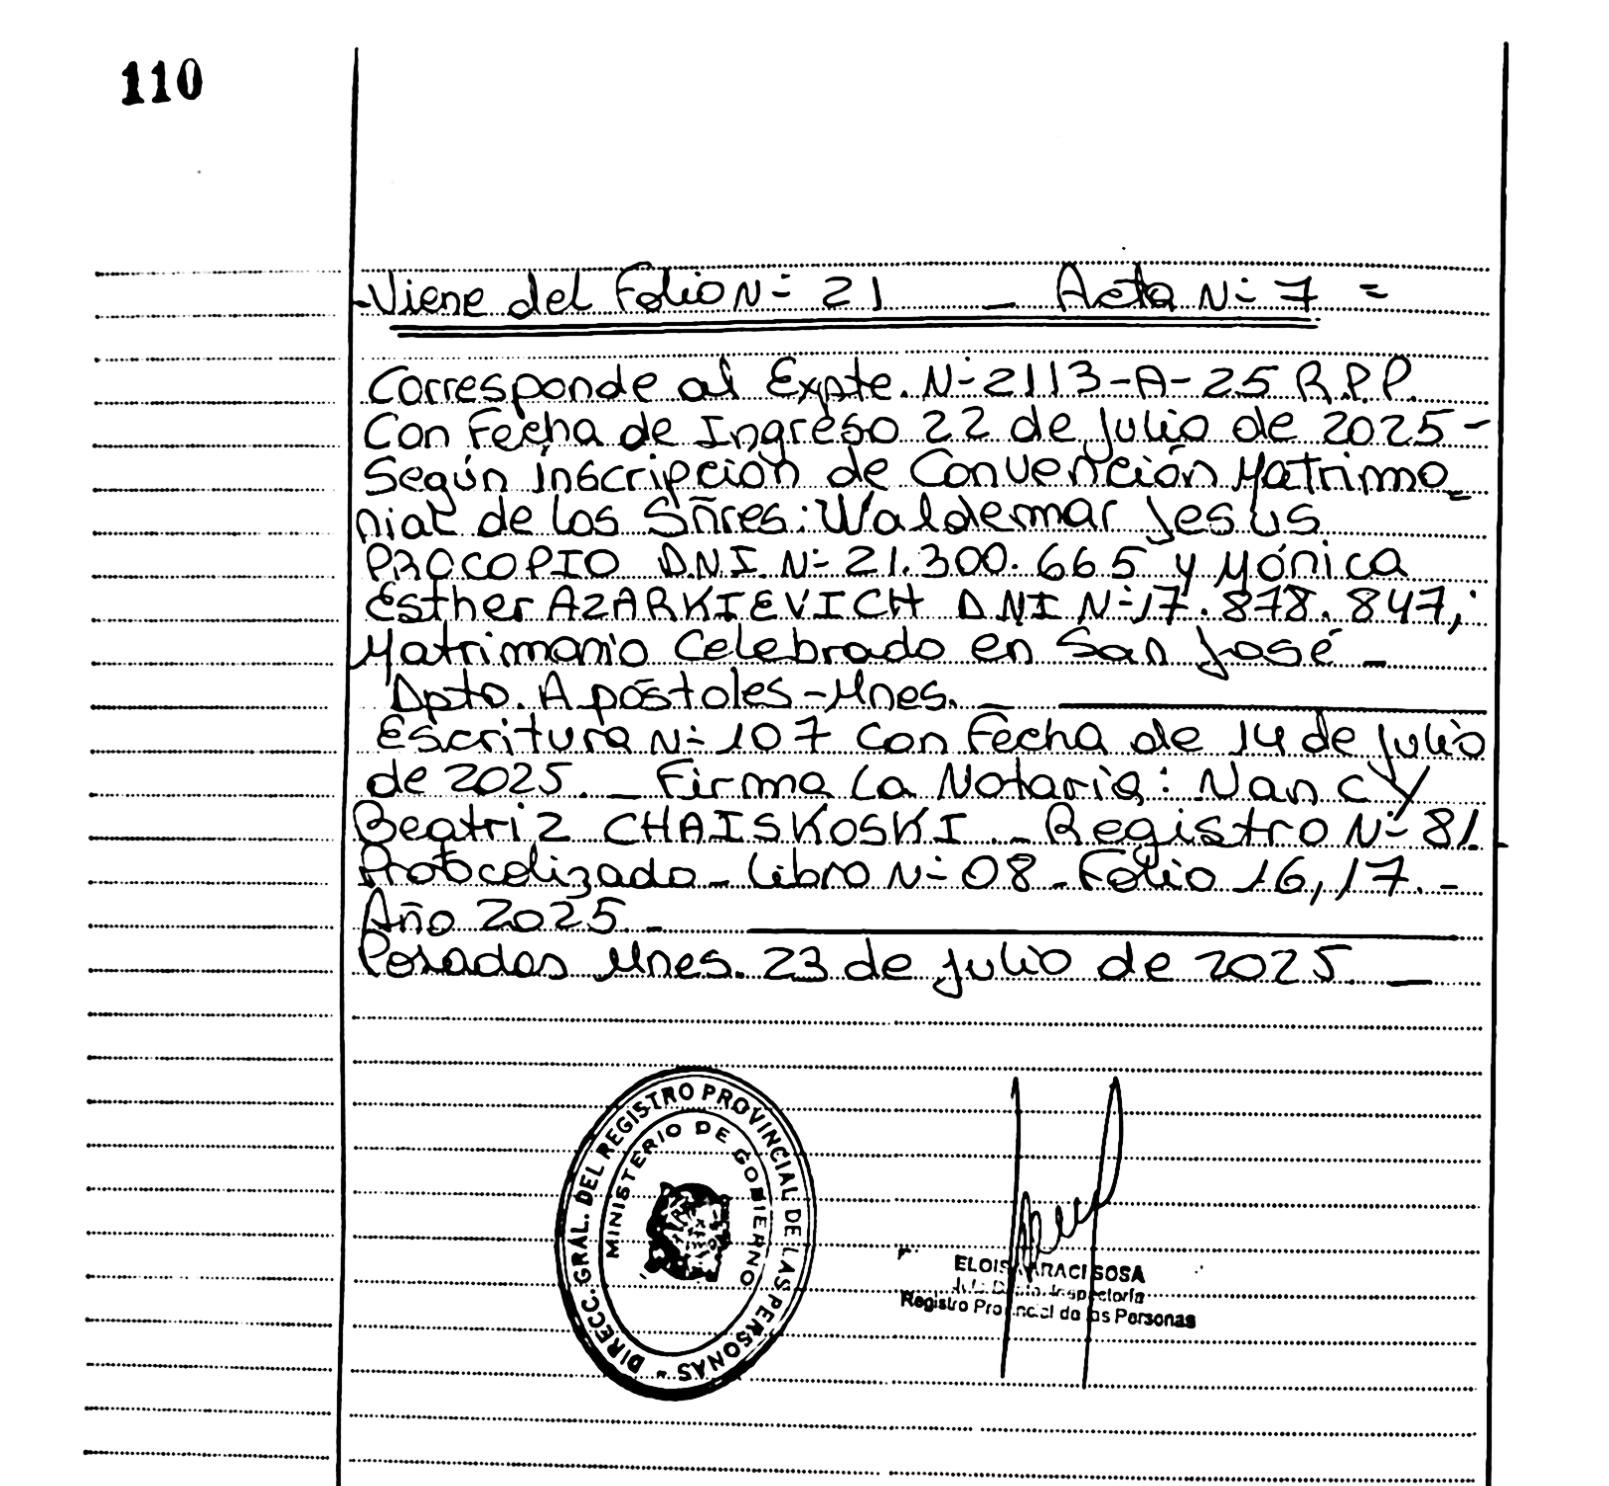 110
-Viene del Folio Nº 21 _ Acta Nº 7 =
Corresponde al Expte. Nº 2113-A-25 R.P.P.
Con Fecha de Ingreso 22 de Julio de 2025-
Según inscripción de Convención Matrimo_
nial de los Sñres: Waldemar Jesus
PROCOPIO D.N.I. Nº 21.300.665 y Mónica
Esther AZARKIEVICH DNI Nº 17.878.847,
Matrimonio Celebrado en San José _
Dpto. Apóstoles-Mnes. _
Escritura Nº 107 con Fecha de 14 de Julio
de 2025. _ Firma La Notaria: Nancy
Beatriz CHAISKOSKI _ Registro Nº 81.
Protocolizado _ Libro Nº 08 _ Folio 16,17.-
Año 2025. _
Posadas Mnes. 23 de Julio de 2025 _
DIRECC. GRAL. DEL REGISTRO PROVINCIAL DE LAS PERSONAS -
MINISTERIO DE GOBIERNO
ELOISA ARACI SOSA
Inspectoría
Registro Provincial de las Personas